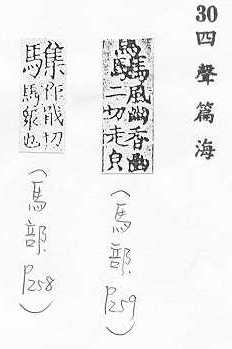 30四聲篇海
驫
風幽香幽
二切走皃
(馬部 P259)
作戢切
馬 也
(馬部 P258)